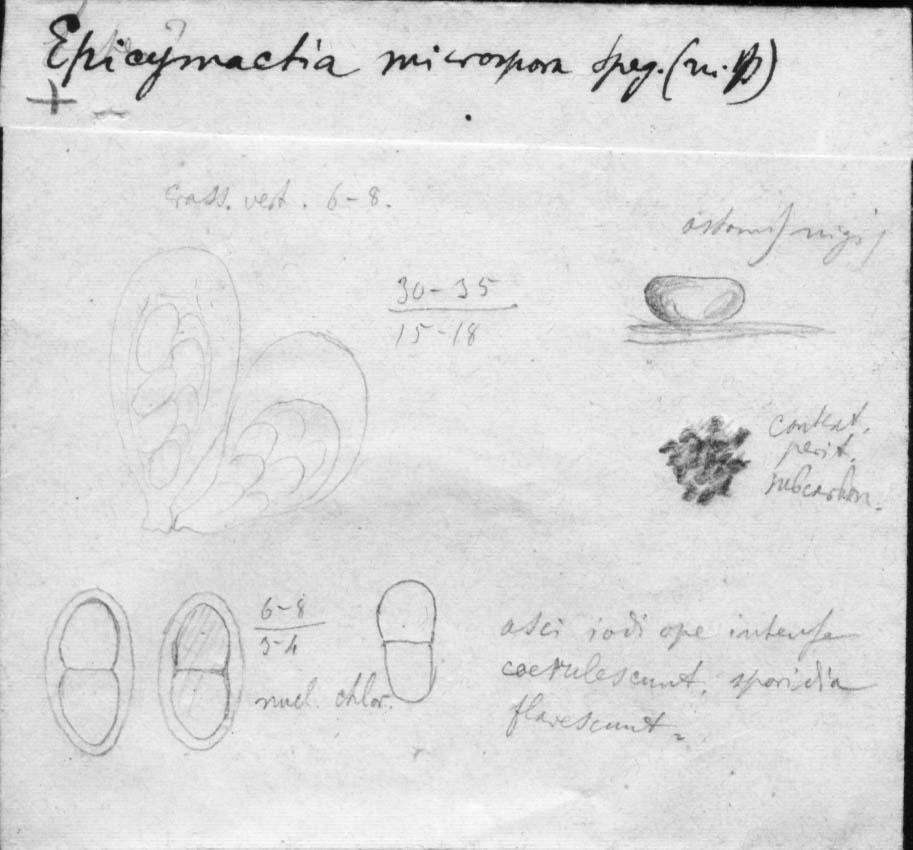 Epicymactia microspora Speg. (n. sp)
+
crass. vert. 6-8.
ostom
30-35
15-18
context.
perit.
subcarbon.
6-8
3-4
nucl. chlor.
asci iodi ope intense
coerulescunt, sporidia
flavescunt.